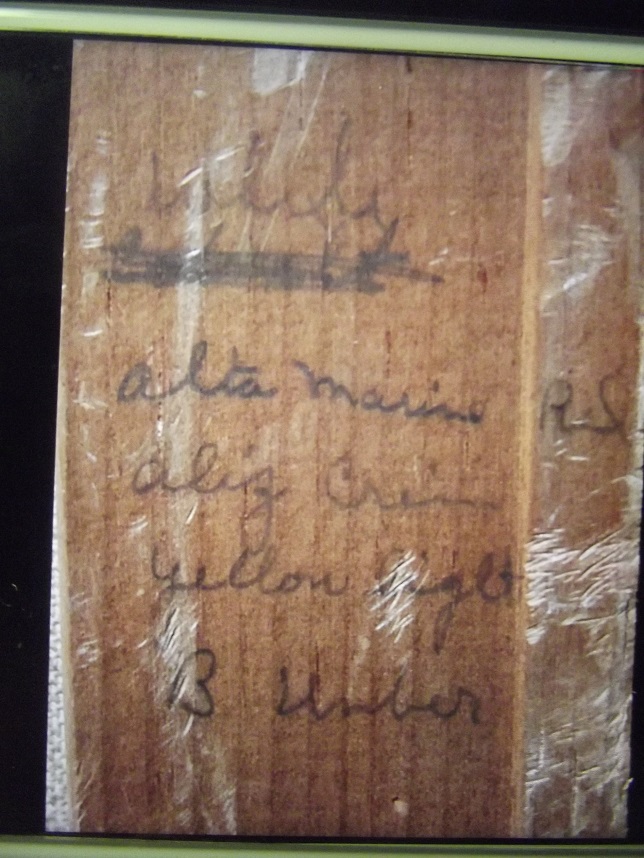 alta marine R.S
aliz Crim
yellow light
B Umber